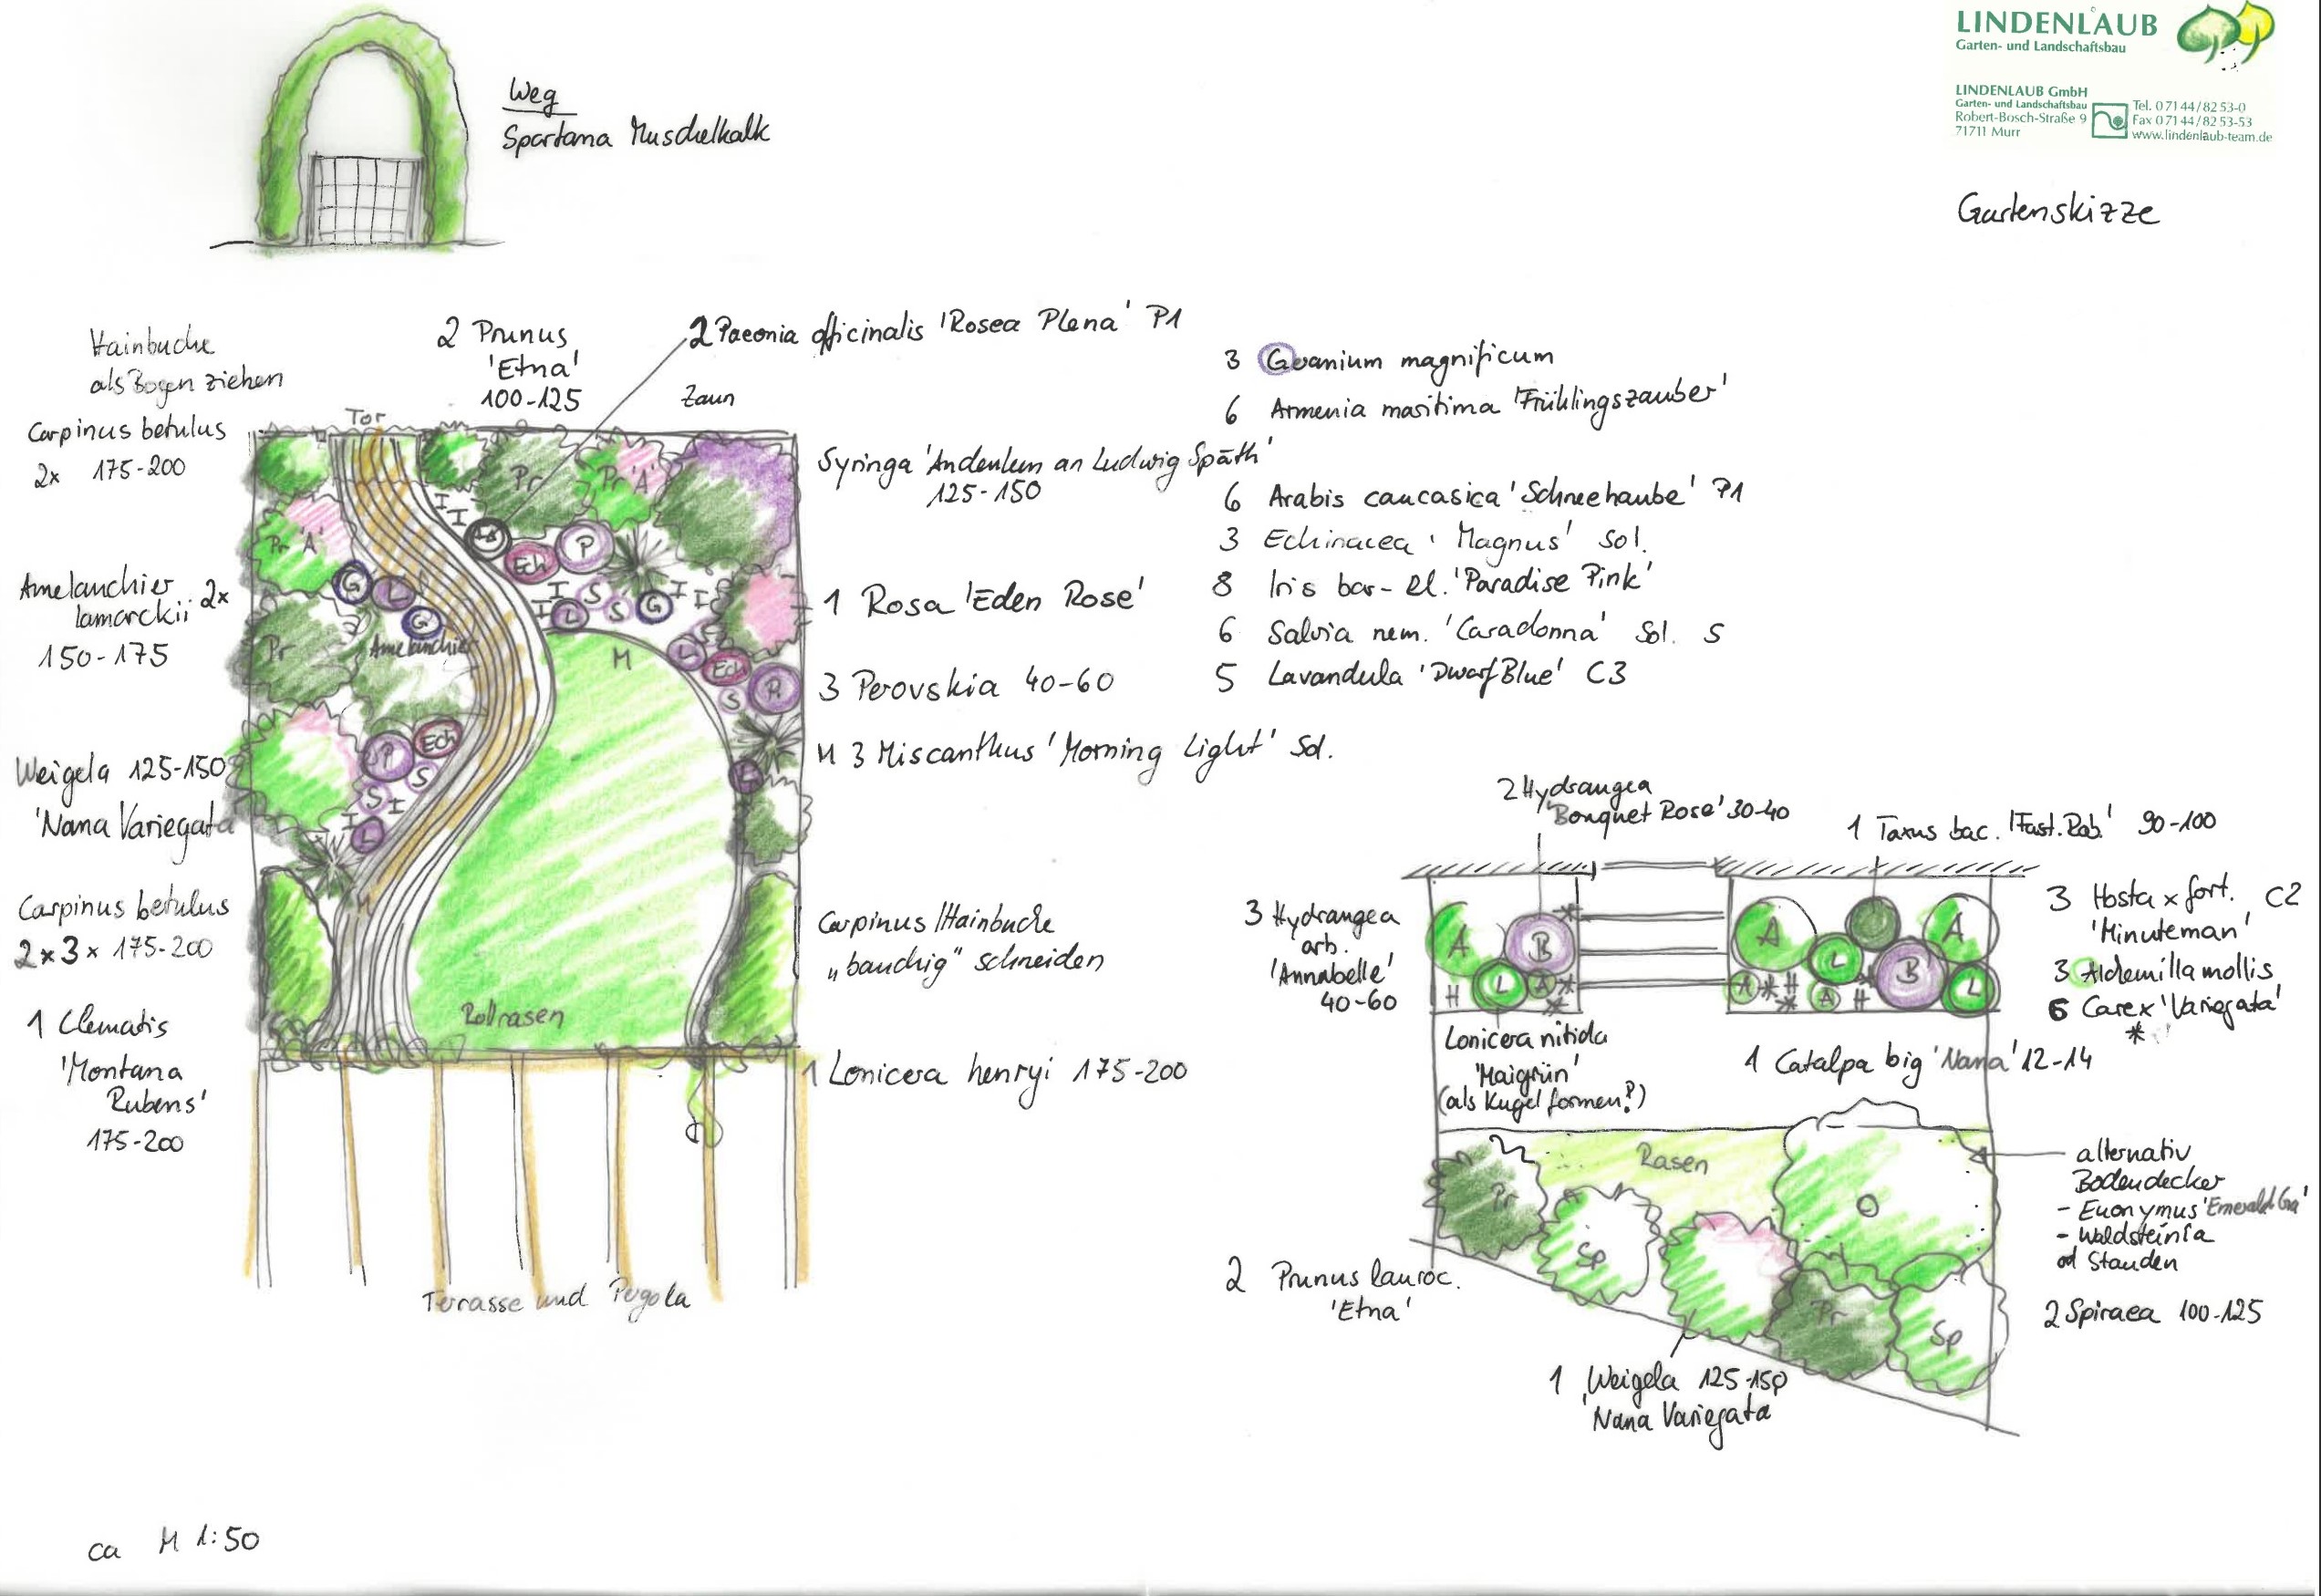 LINDENLAUB
Garten- und Landschaftsbau
LINDENLAUB GmbH
Garten- und Landschaftsbau
Robert-Bosch-Straße 9
71711 Murr
Tel. 0 71 44/82 53-0
Fax 0 71 44/82 53-53
www.lindenlaub-team.de
Gartenskizze
Weg
Spartana Muschelkalk
Hainbuche
als Bogen ziehen
Carpinus betulus
2x 175-200
Amelanchier 2x
lamarckii
150-175
Weigela 125-150
'Nana Variegata
Carpinus betulus
2x3x 175-200
1 Clematis
'Montana
Rubens'
175-200
2 Prunus
'Etna'
100-125
2 Paeonia officinalis 'Rosea Plena' P1
Zaun
Tor
Syringa 'Andenken an Ludwig Späth'
125-150
1 Rosa 'Eden Rose'
3 Perovskia 40-60
M 3 Miscanthus 'Morning Light' Sol.
Carpinus/Hainbuche
"bauchig" schneiden
1 Lonicera henryi 175-200
Pr
Pr 'A'
Pr 'A'
Pr
Amelanchier
G
L
G
P
Ech
S
S
I
I
L
I
I
Ech
P
I
S
S
I
L
G
I
I
M
L
Ech
S
P
L
M
Rollrasen
Terrasse und Pergola
3 Geranium magnificum
6 Armenia maritima 'Frühlingszauber'
6 Arabis caucasica 'Schneehaube' P1
3 Echinacea 'Magnus' Sol.
8 Iris bar-El. 'Paradise Pink'
6 Salvia nem. 'Caradonna' Sol. S
5 Lavandula 'Dwarf Blue' C3
2 Hydrangea
'Bouquet Rose' 30-40
1 Taxus bac. 'Fast. Rob.' 90-100
3 Hydrangea
arb.
'Annabelle'
40-60
A
B
H
L
A
A
A
L
B
L
A
H
A
H
3 Hosta x fort. C2
'Minuteman'
3 Alchemilla mollis
6 Carex 'Variegata'
*
Lonicera nitida
'Maigrün'
(als Kugel formen?)
1 Catalpa big 'Nana' 12-14
Rasen
Pr
Sp
Pr
Sp
alternativ
Bodendecker
- Euonymus 'Emerald Ga'
- Waldsteinia
od Stauden
2 Prunus lauroc.
'Etna'
2 Spiraea 100-125
1 Weigela 125-150
'Nana Variegata
ca M 1:50